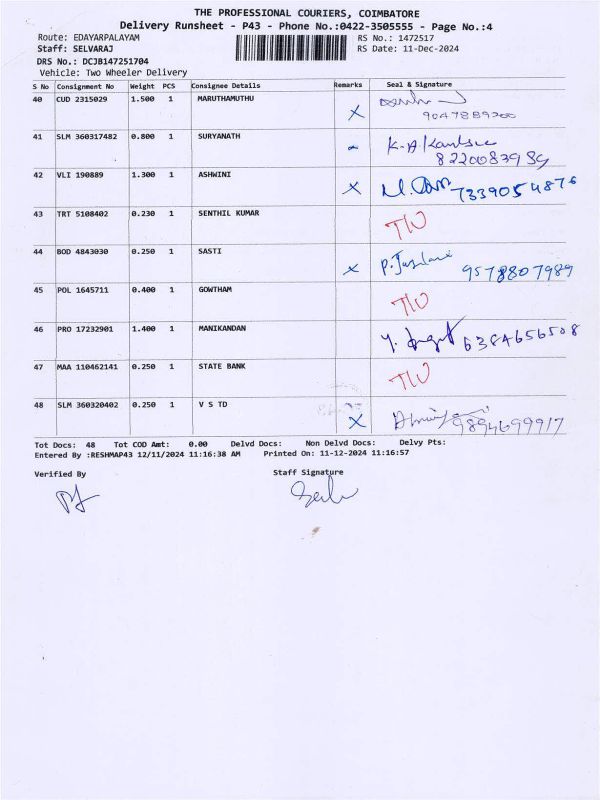 THE PROFESSIONAL COURIERS, COIMBATORE
Delivery Runsheet - P43 - Phone No.:0422-3505555 - Page No.:4
Route: EDAYARPALAYAM RS No.: 1472517
Staff: SELVARAJ RS Date: 11-Dec-2024
DRS No.: DCJB147251704
Vehicle: Two Wheeler Delivery
S No Consignment No Weight PCS Consignee Details Remarks Seal & Signature
40 CUD 2315029 1.500 1 MARUTHAMUTHU X
41 SLM 360317482 0.800 1 SURYANATH
8220083989
42 VLI 190889 1.300 1 ASHWINI X 7339054876
43 TRT 5108402 0.230 1 SENTHIL KUMAR
44 BOD 4843030 0.250 1 SASTI X 9578807989
45 POL 1645711 0.400 1 GOWTHAM
46 PRO 17232901 1.400 1 MANIKANDAN 6384656508
47 MAA 110462141 0.250 1 STATE BANK
48 SLM 360320402 0.250 1 V S TD X 9894699917
Tot Docs: 48 Tot COD Amt: 0.00 Delvd Docs: Non Delvd Docs: Delvy Pts:
Entered By :RESHMAP43 12/11/2024 11:16:38 AM Printed On: 11-12-2024 11:16:57
Verified By Staff Signature